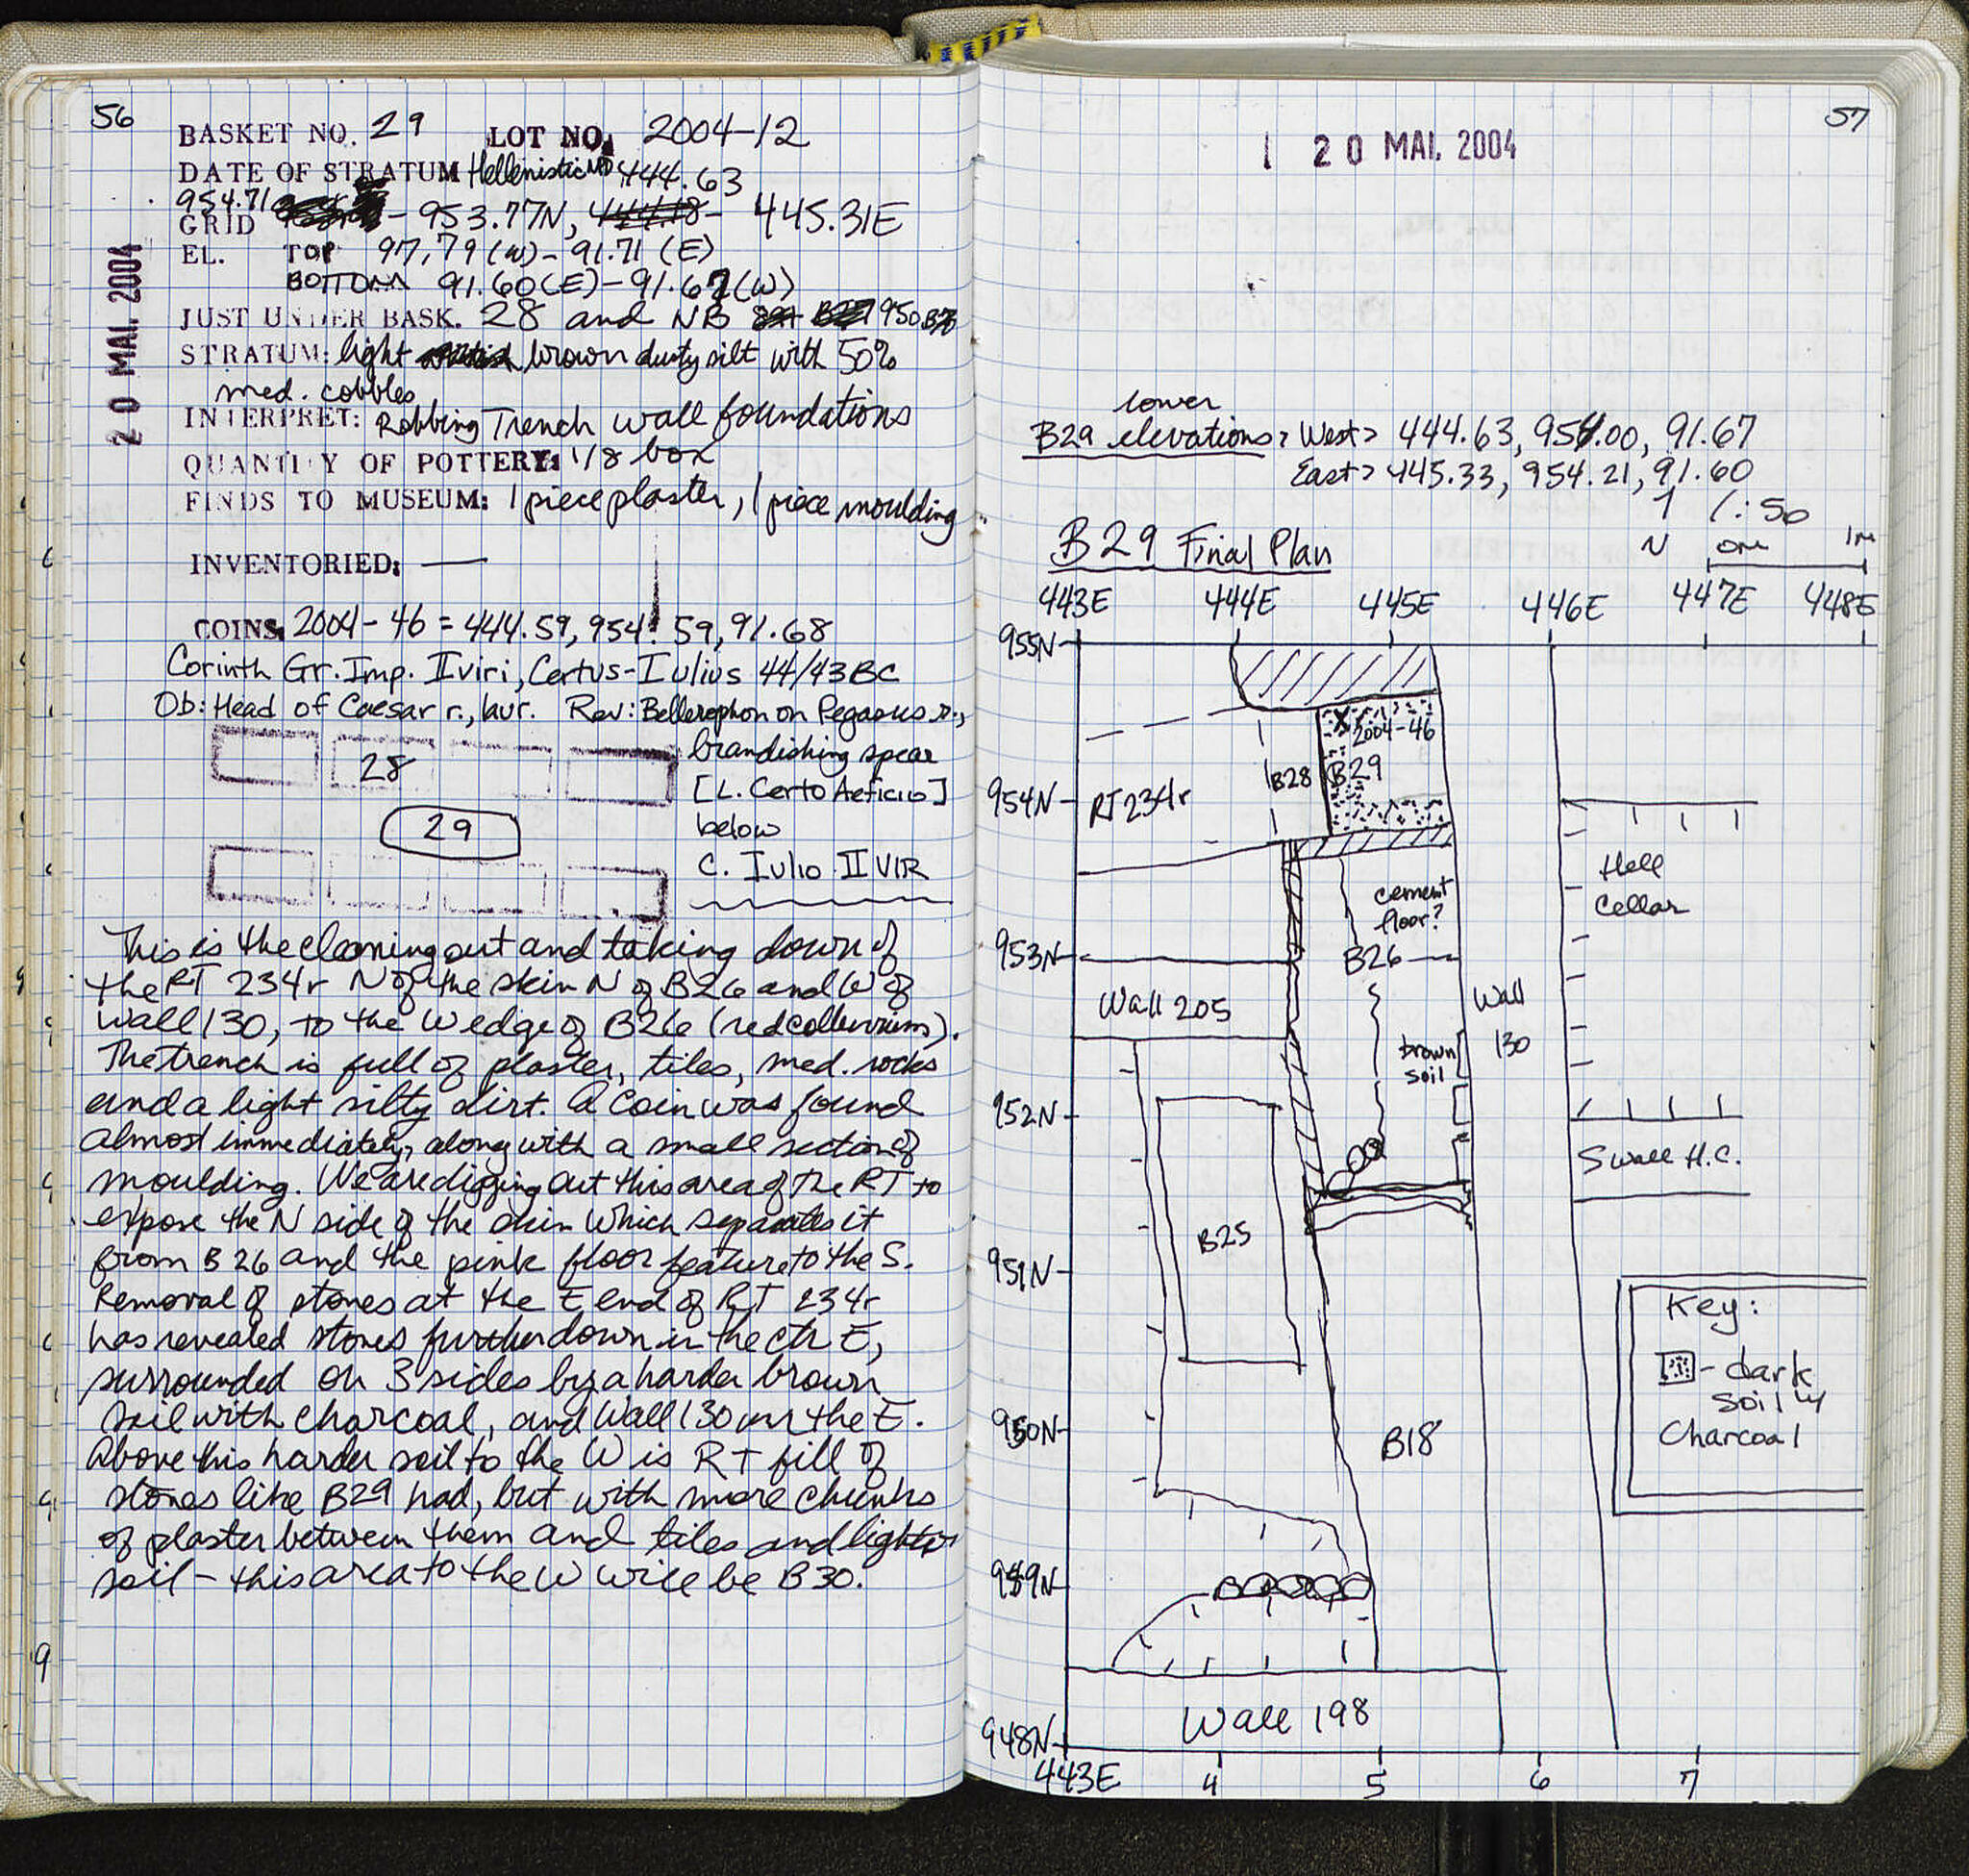 56
BASKET NO. 29 LOT NO. 2004-12
DATE OF STRATUM Hellenistic 444.63
954.71
GRID - 953.77N, 444.18 - 445.31E
EL. TOP 97.79 (W) - 91.71 (E)
BOTTOM 91.60 (E) - 91.67 (W)
20 MAI. 2004
JUST UNDER BASK. 28 and NB 950
STRATUM: light brown dusty silt with 50%
med. cobbles
INTERPRET: Robbing Trench wall foundations
QUANTITY OF POTTERY: 1/8 box
FINDS TO MUSEUM: 1 piece plaster, 1 piece moulding
INVENTORIED: —
COINS 2004-46 = 444.59, 954.59, 91.68
Corinth Gr. Imp. IIviri, Certus-Iulius 44/43 BC
Ob: Head of Caesar r., laur. Rev: Bellerophon on Pegasus r.,
brandishing spear
[L. Certo Aeficio]
below
C. Iulio IIVIR
28
29
This is the cleaning out and taking down of
the RT 234r N of the skin N of B26 and W of
Wall 130, to the W edge of B26 (red colluvium).
The trench is full of plaster, tiles, med. rocks
and a light silty dirt. A coin was found
almost immediately, along with a small section of
moulding. We are digging out this area of the RT to
expose the N side of the skin which separates it
from B26 and the pink floor feature to the S.
Removal of stones at the E end of RT 234r
has revealed stones further down in the ctr E,
surrounded on 3 sides by a harder brown
soil with charcoal, and Wall 130 on the E.
Above this harder soil to the W is RT fill of
stones like B29 had, but with more chunks
of plaster between them and tiles and lighter
soil - this area to the W will be B30.
57
1 20 MAI. 2004
lower
B29 elevations: West > 444.63, 954.00, 91.67
East > 445.33, 954.21, 91.60
1:50
N 0m 1m
B29 Final Plan
443E 444E 445E 446E 447E 448E
955N
2004-46
954N RT 234r B28 B29
Hell
Cellar
cement
floor?
953N B26
Wall 205
Wall
130
brown
soil
952N
S wall H.C.
B25
951N
Key:
- dark
soil w/
Charcoal
950N B18
949N
Wall 198
948N
443E 4 5 6 7